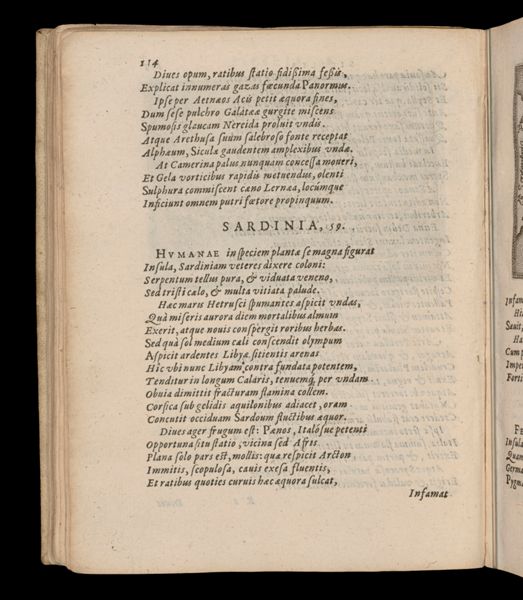 114
Diues opum, ratibus statio fidißima feßis,
Explicat innumeras gazas fœcunda Panormus.
Ipse per Aetnæos Acis petit æquora fines,
Dum sese pulchro Galatææ gurgite miscens
Spumosis glaucam Nereida proluit vndis.
Atque Arethusa suum salebroso fonte receptat
Alphæum, Siculæ gaudentem amplexibus vndæ.
At Camerina palus nunquam concessa moueri,
Et Gela vorticibus rapidis metuendus, olenti
Sulphura commiscent cæno Lernæa, locúmque
Inficiunt omnem putri fœtore propinquum.
SARDINIA, 59.
HVMANAE in speciem plantæ se magna figurat
Insula, Sardiniam veteres dixere coloni:
Serpentum tellus pura, & viduata veneno,
Sed tristi cælo, & multa vitiata palude.
Hac maris Hetrusci spumantes aspicit vndas,
Quà miseris aurora diem mortalibus almum
Exerit, atque nouis conspergit roribus herbas.
Sed quà sol medium cæli conscendit olympum
Aspicit ardentes Libyæ sitientis arenas
Hic vbi nunc Libyam contra fundata potentem,
Tenditur in longum Calaris, tenuemq́; per vndam
Obuia dimittit fracturam flamina collem.
Corsica sub gelidis aquilonibus adiacet, oram
Concutit occiduam Sardoum fluctibus æquor.
Diues ager frugum est: Pænos, Italósue petenti
Opportuna situ statio, vicina sed Afris
Plana solo pars est, mollis: quæ respicit Arcton
Immitis, scopulosa, cauis exesa fluentis,
Et ratibus quoties curuis hæc æquora sulcat,
Infamat